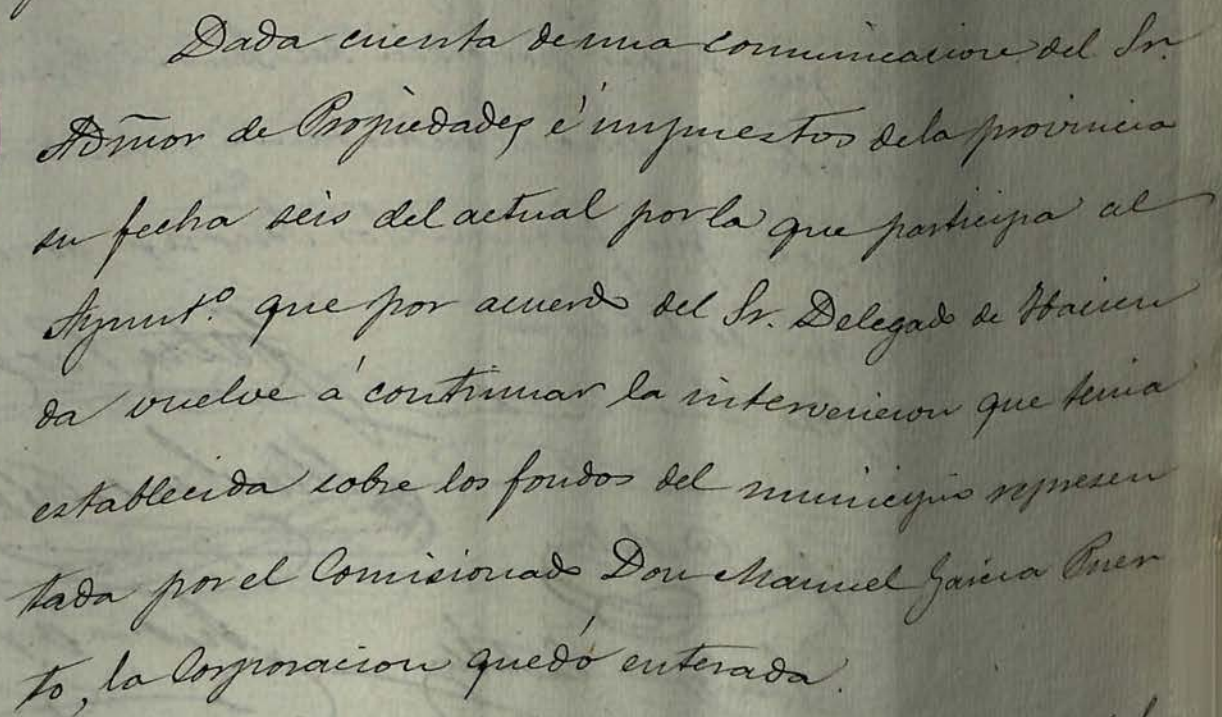 Dada cuenta de una comunicacion del Sr.
Admor de Propiedades é impuestos de la provincia
su fecha seis del actual por la que participa al
Ayunt.º que por acuerdo del Sr. Delegado de Hacien
da vuelve á continuar la intervencion que tenia
establecida sobre los fondos del municipio represen
tada por el Comisionado Don Manuel Garcia Puer
to, la Corporacion quedó enterada.